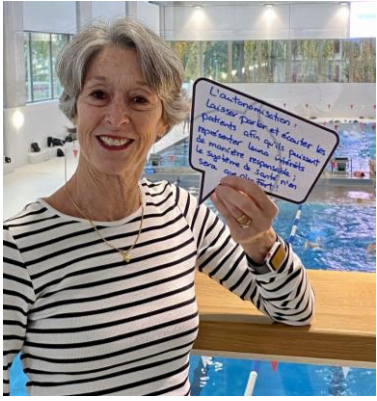 L'autonomisation :
Laisser parler et écouter les
patients afin qu'ils puissent
représenter leurs intérêts
de manière responsable ;
le système de santé n'en
sera que plus fort !